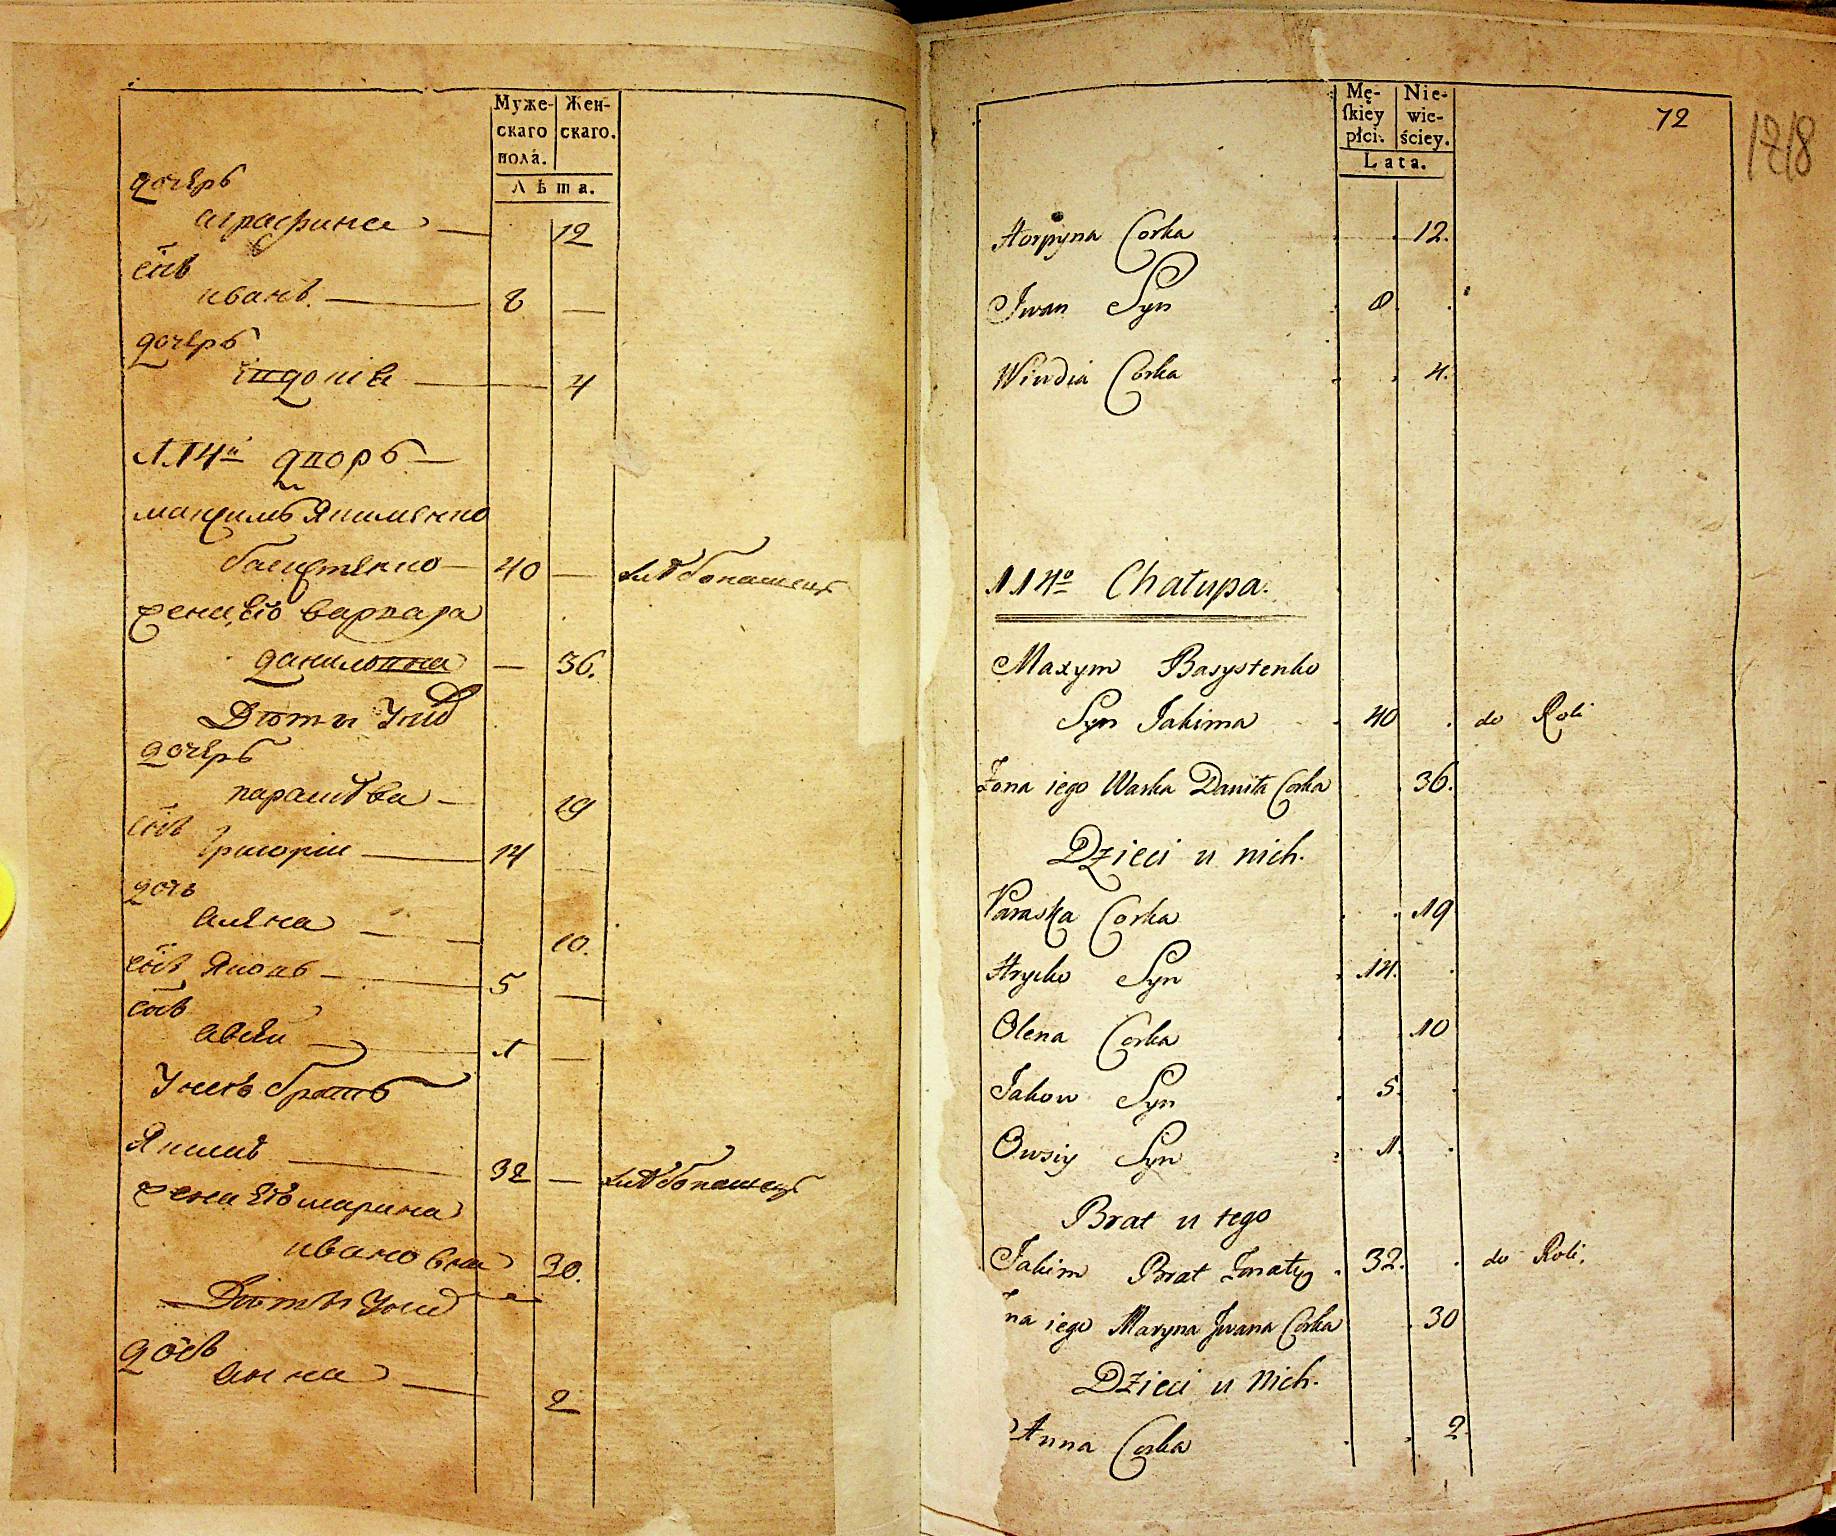 Муже- Жен-
скаго скаго.
пола.
Лѣта.
дочерь
аграфина — 12
снъ
иванъ. — 8 —
дочерь
4
114й дворъ —
максимъ Якименко
40 —
жена, его варвара
даниловна — 36.
Дѣти У нихъ
дочерь
парасковѧ — 19
снъ
Григории — 14
дочь
алена — 10.
снъ Яковъ — 5 —
снъ
авсеи — 1 —
У него братъ
Якимъ — 32 —
жена его марина
ивановна 30.
Дѣти У нихъ
дочь
анна — 2
Mę- Nie-
skiey wie-
płci. ściey.
Lata.
72
1218
Horpyna Corka 12.
Jwan Syn 8
Windia Corka 4.
114o Chałupa.
Maxym Basystenko
Syn Jakima 40 do Roli
Żona iego Warka Daniła Corka 36.
Dzieci u nich.
Paraska Corka 19
Hrycko Syn 14.
Olena Corka 10
Jakow Syn 5.
Owsiy Syn 1.
Brat u tego
Jakim Brat Żonaty 32. do Roli.
na iego Maryna Jwana Corka 30
Dzieci u Nich.
Anna Corka 2.